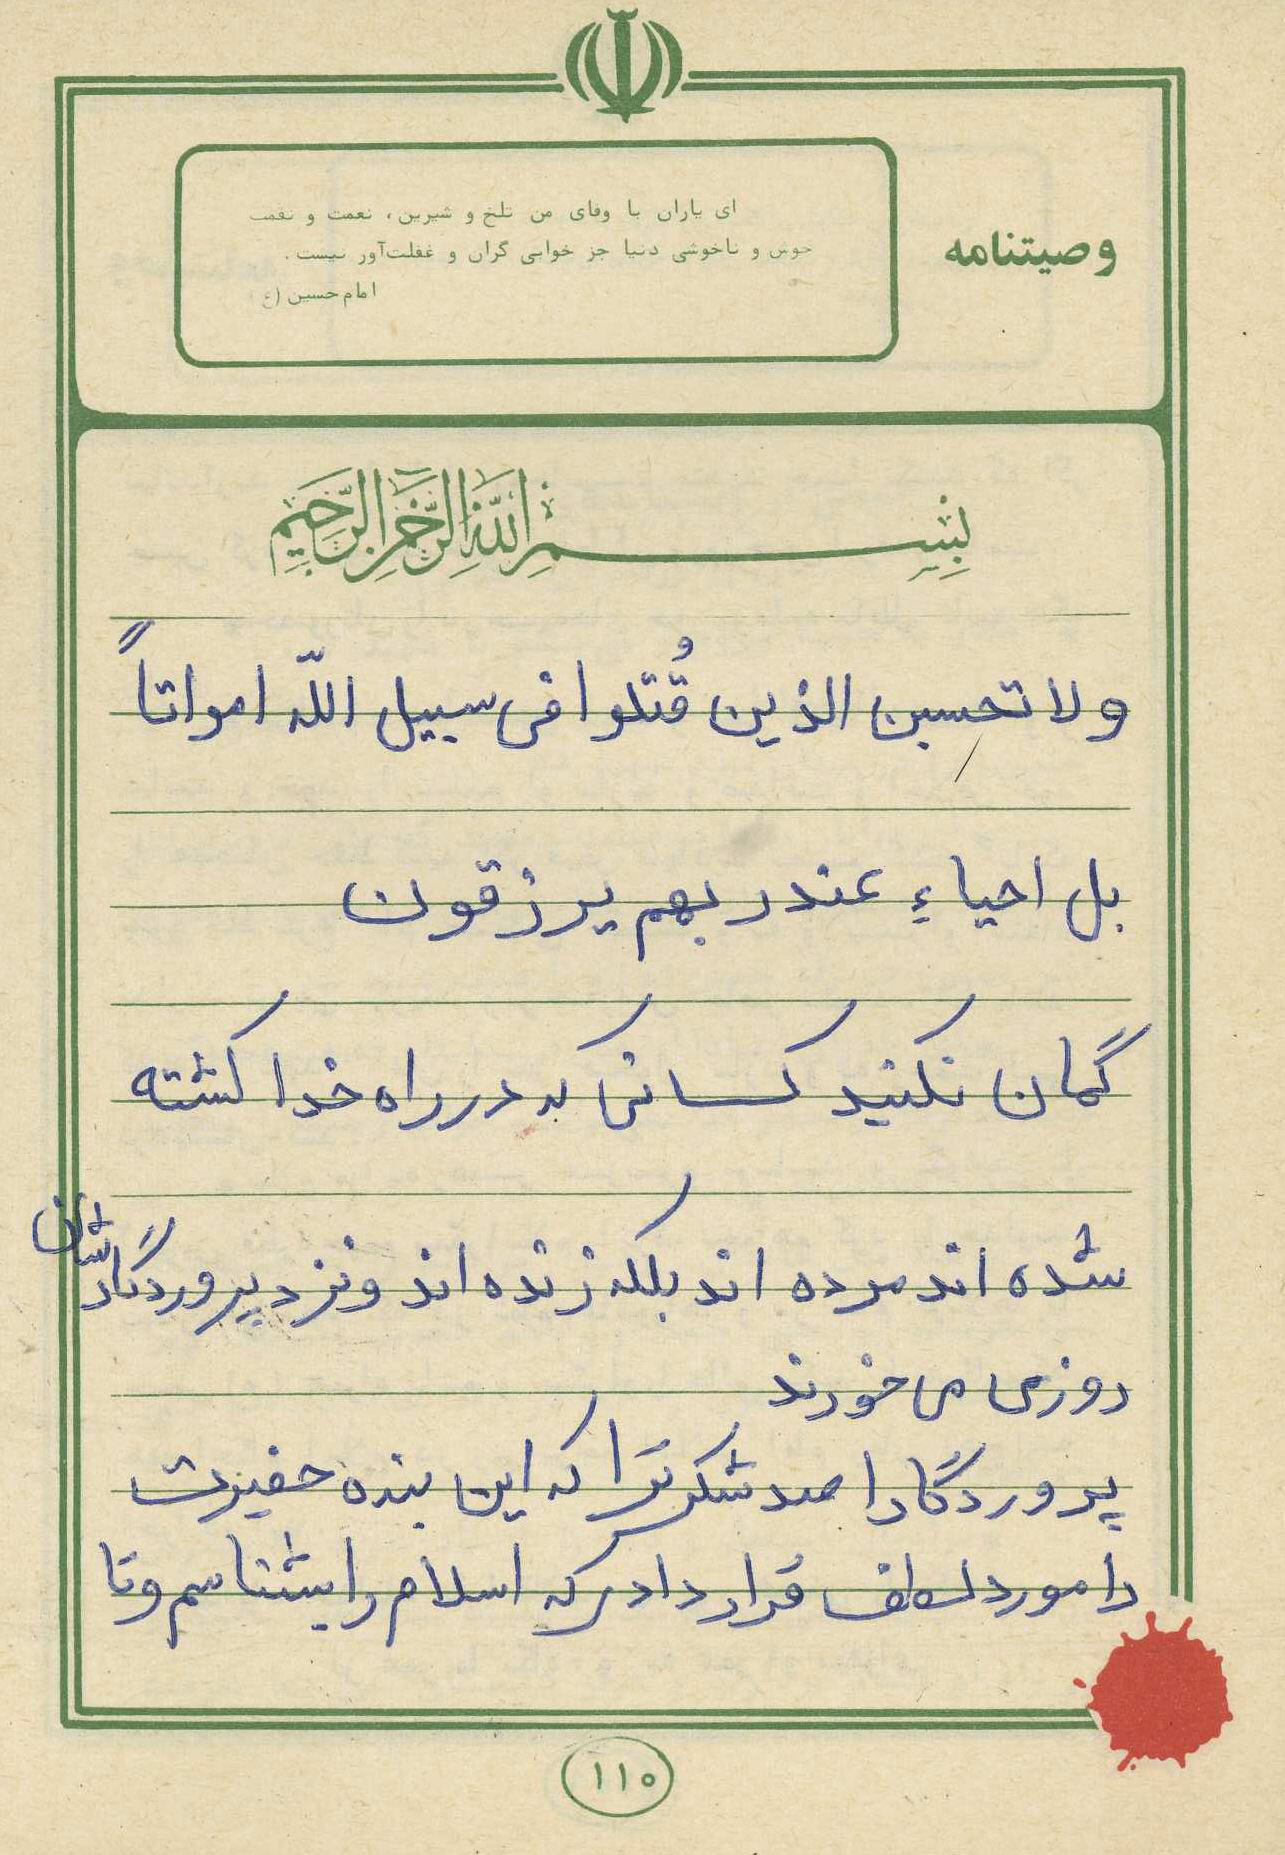 وصیتنامه
ای یاران با وفای من تلخ و شیرین، نعمت و نقمت
خوش و ناخوشی دنیا جز خوابی گران و غفلت‌آور نیست.
امام حسین (ع)
بِسْمِ اللَّهِ الرَّحْمنِ الرَّحِيمِ
ولا تحسبن الذین قُتلوا فی سبیل اللّه امواتاً
بل احیاءِ عند ربهم یرزقون
گمان نکنید کسانی که در راه خدا کشته
شده اند مرده اند بلکه زنده اند و نزد پروردگارشان
روزی می خورند
پروردگارا صد شکر ترا که این بنده حقیرت
را مورد لطف قرار دادی که اسلام را بشناسم و تا
۱۱۰